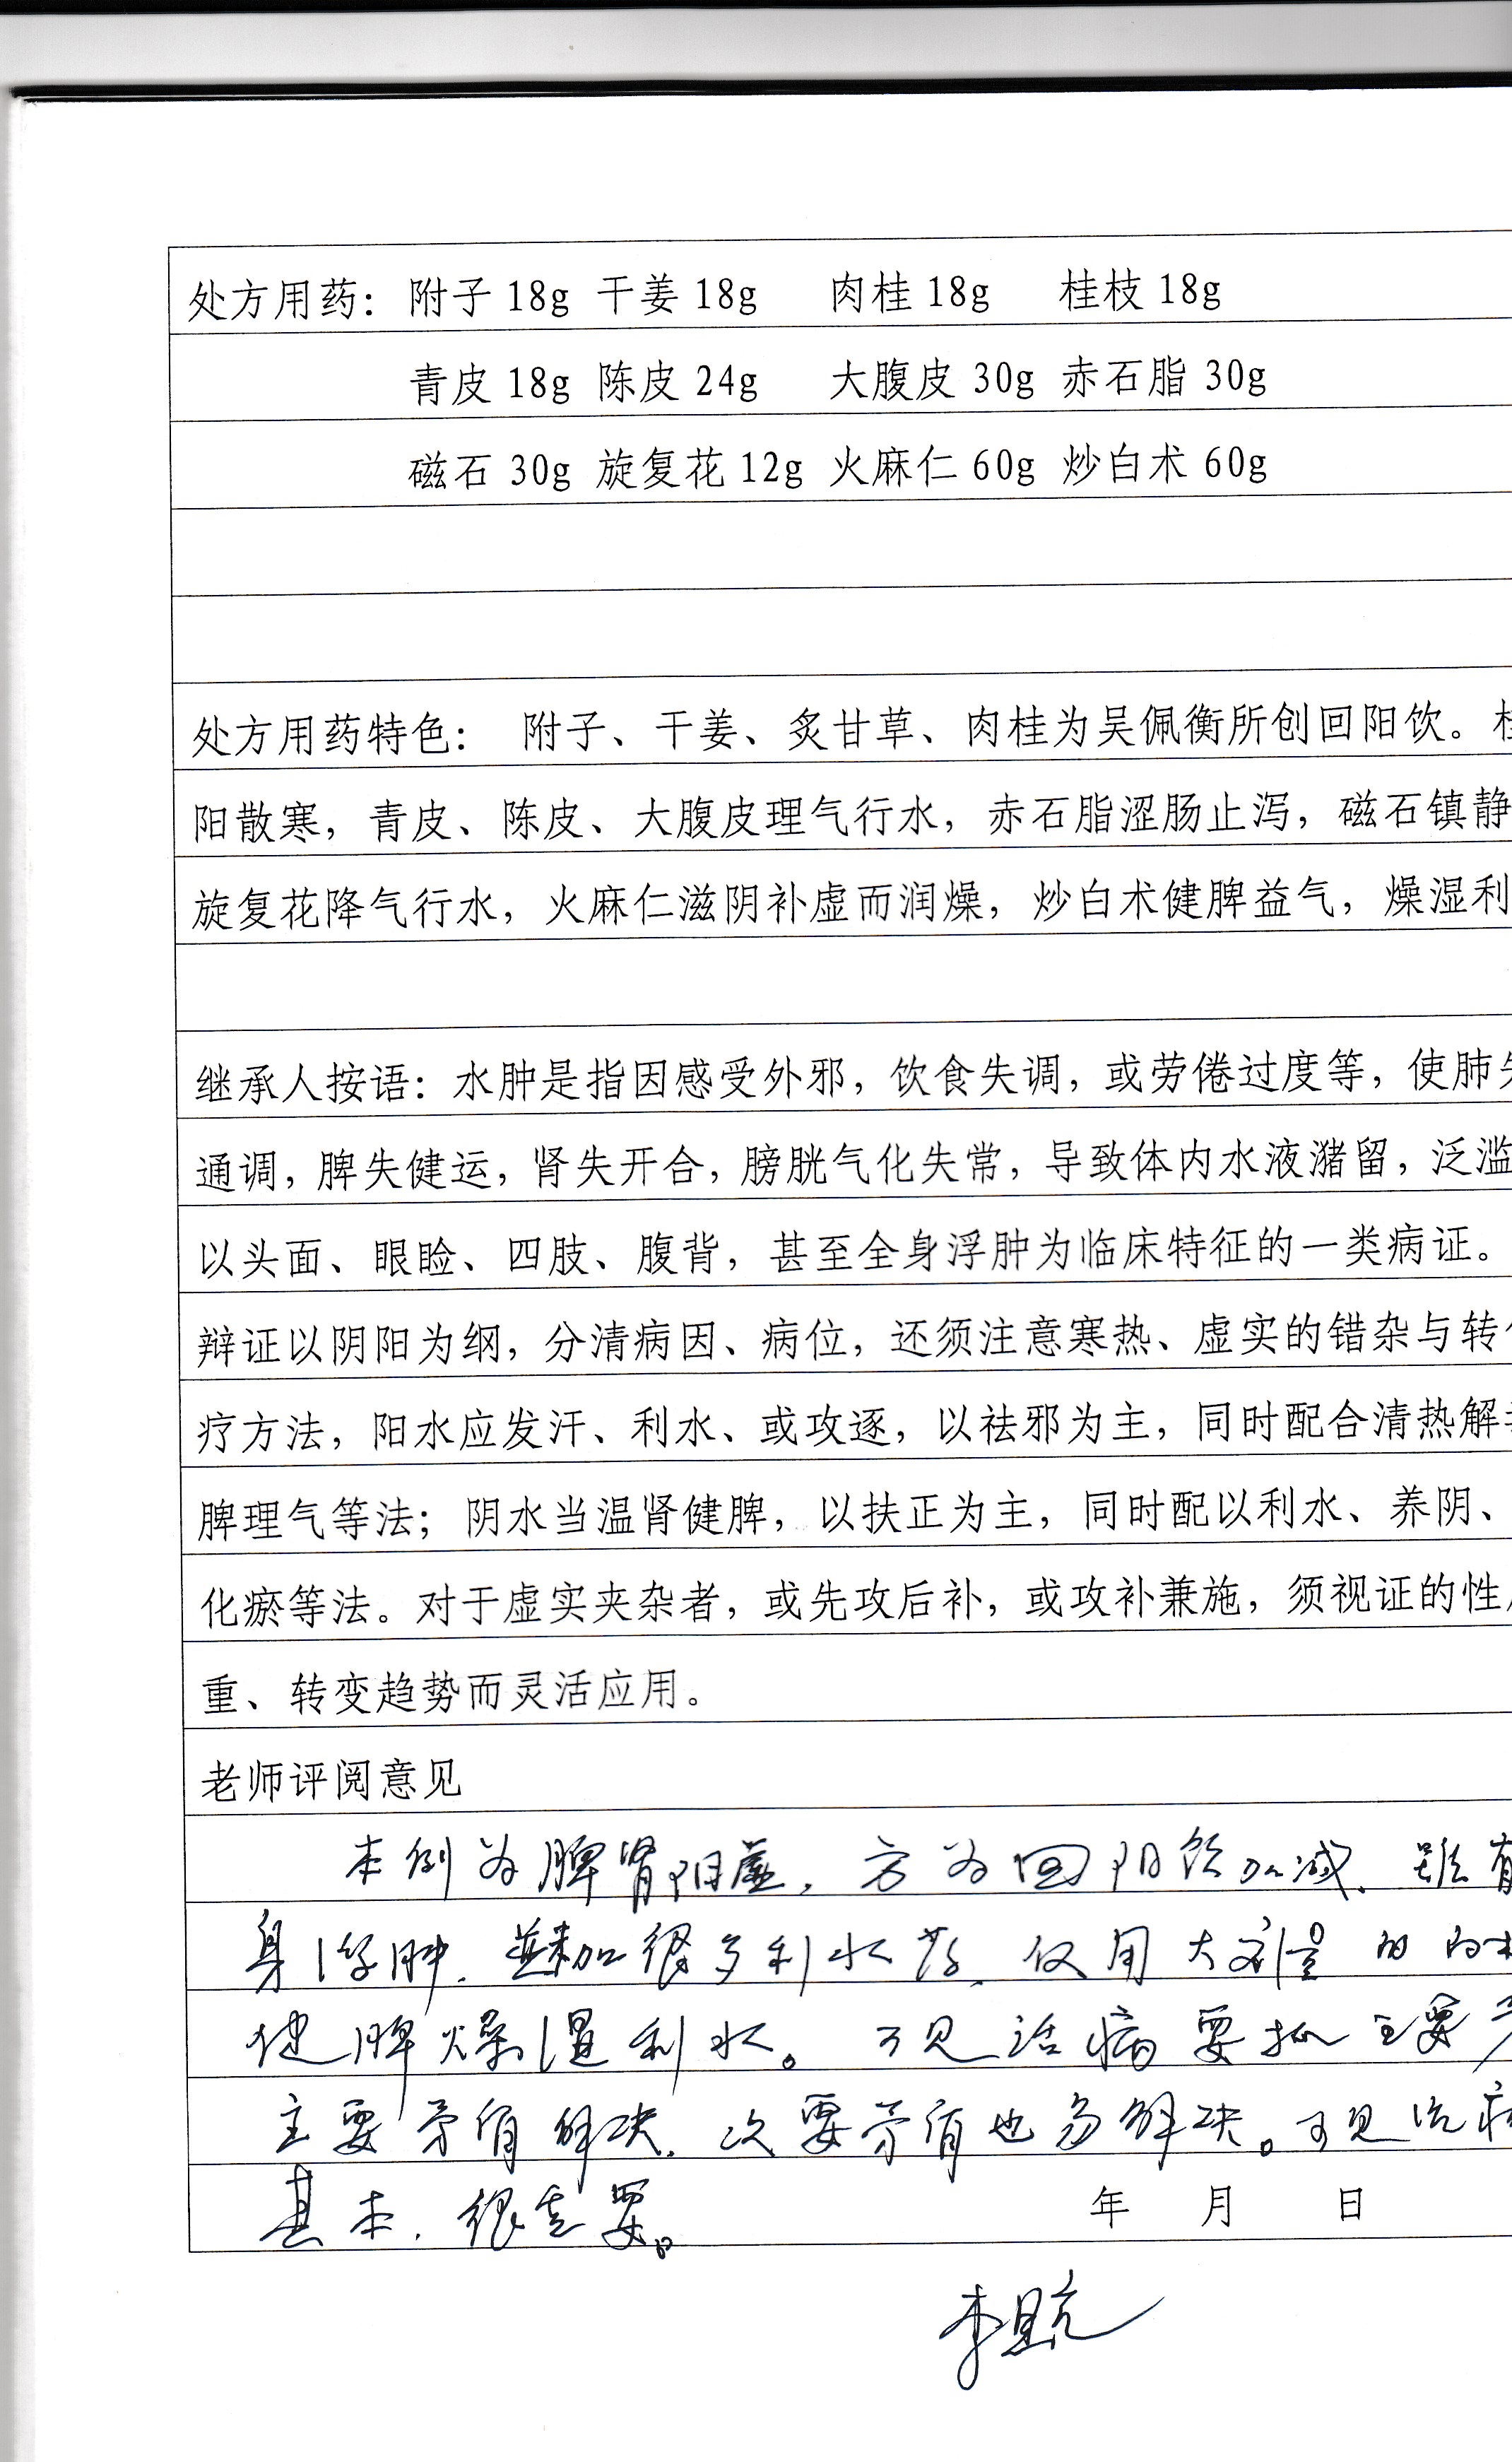 处方用药：附子 18g 干姜 18g 肉桂 18g 桂枝 18g
青皮 18g 陈皮 24g 大腹皮 30g 赤石脂 30g
磁石 30g 旋复花 12g 火麻仁 60g 炒白术 60g
处方用药特色： 附子、干姜、炙甘草、肉桂为吴佩衡所创回阳饮。
阳散寒，青皮、陈皮、大腹皮理气行水，赤石脂涩肠止泻，磁石镇静
旋复花降气行水，火麻仁滋阴补虚而润燥，炒白术健脾益气，燥湿利
继承人按语：水肿是指因感受外邪，饮食失调，或劳倦过度等，使肺失
通调，脾失健运，肾失开合，膀胱气化失常，导致体内水液潴留，泛滥
以头面、眼睑、四肢、腹背，甚至全身浮肿为临床特征的一类病证。
辩证以阴阳为纲，分清病因、病位，还须注意寒热、虚实的错杂与转
疗方法，阳水应发汗、利水、或攻逐，以祛邪为主，同时配合清热解
脾理气等法；阴水当温肾健脾，以扶正为主，同时配以利水、养阴、
化瘀等法。对于虚实夹杂者，或先攻后补，或攻补兼施，须视证的性
重、转变趋势而灵活应用。
老师评阅意见
本例为脾肾阳虚，方为回阳饮加减，虽有
身浮肿，并未加很多利水药，仅用大剂量的白术
健脾燥湿利水。可见治病要抓主要矛
主要矛盾解决，次要矛盾也易解决。可见治病
其本，很重要。
年 月 日
李